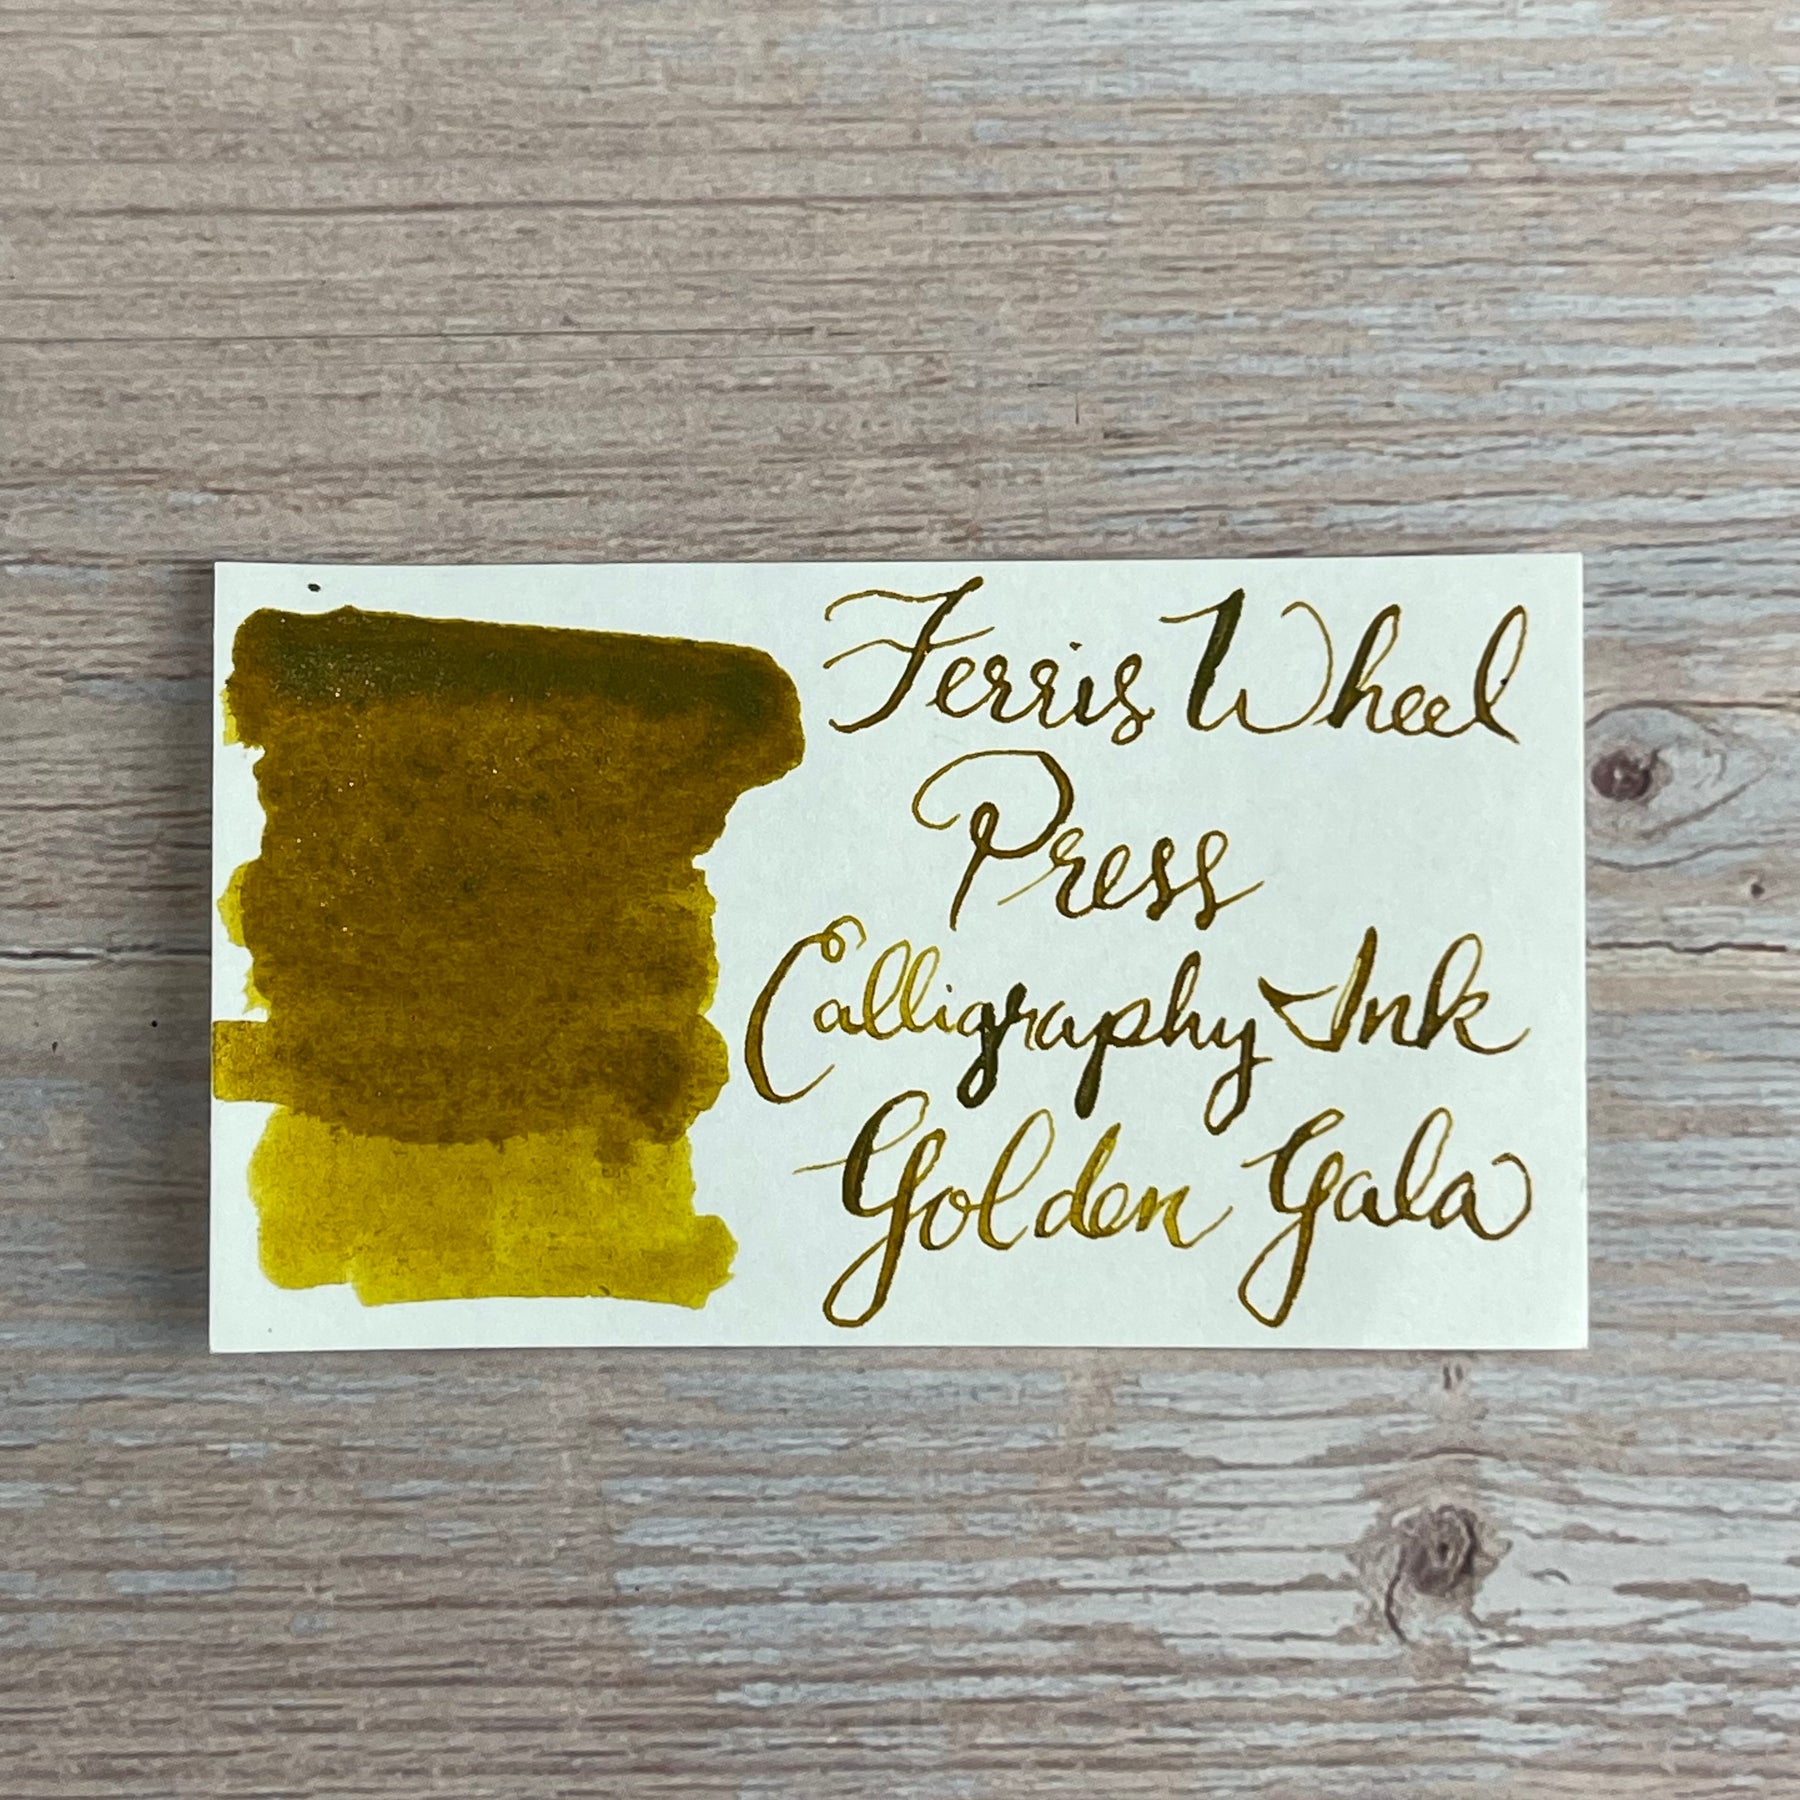 Ferris Wheel
Press
Calligraphy Ink
Golden Gala